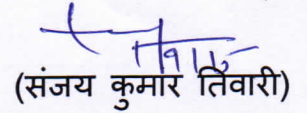 (संजय कुमार तिवारी)